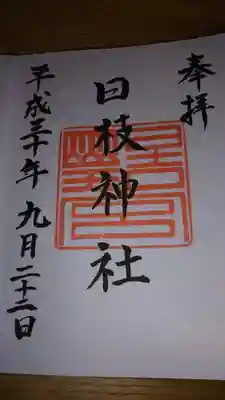 奉拝
日枝神社
平成三十年九月二十二日